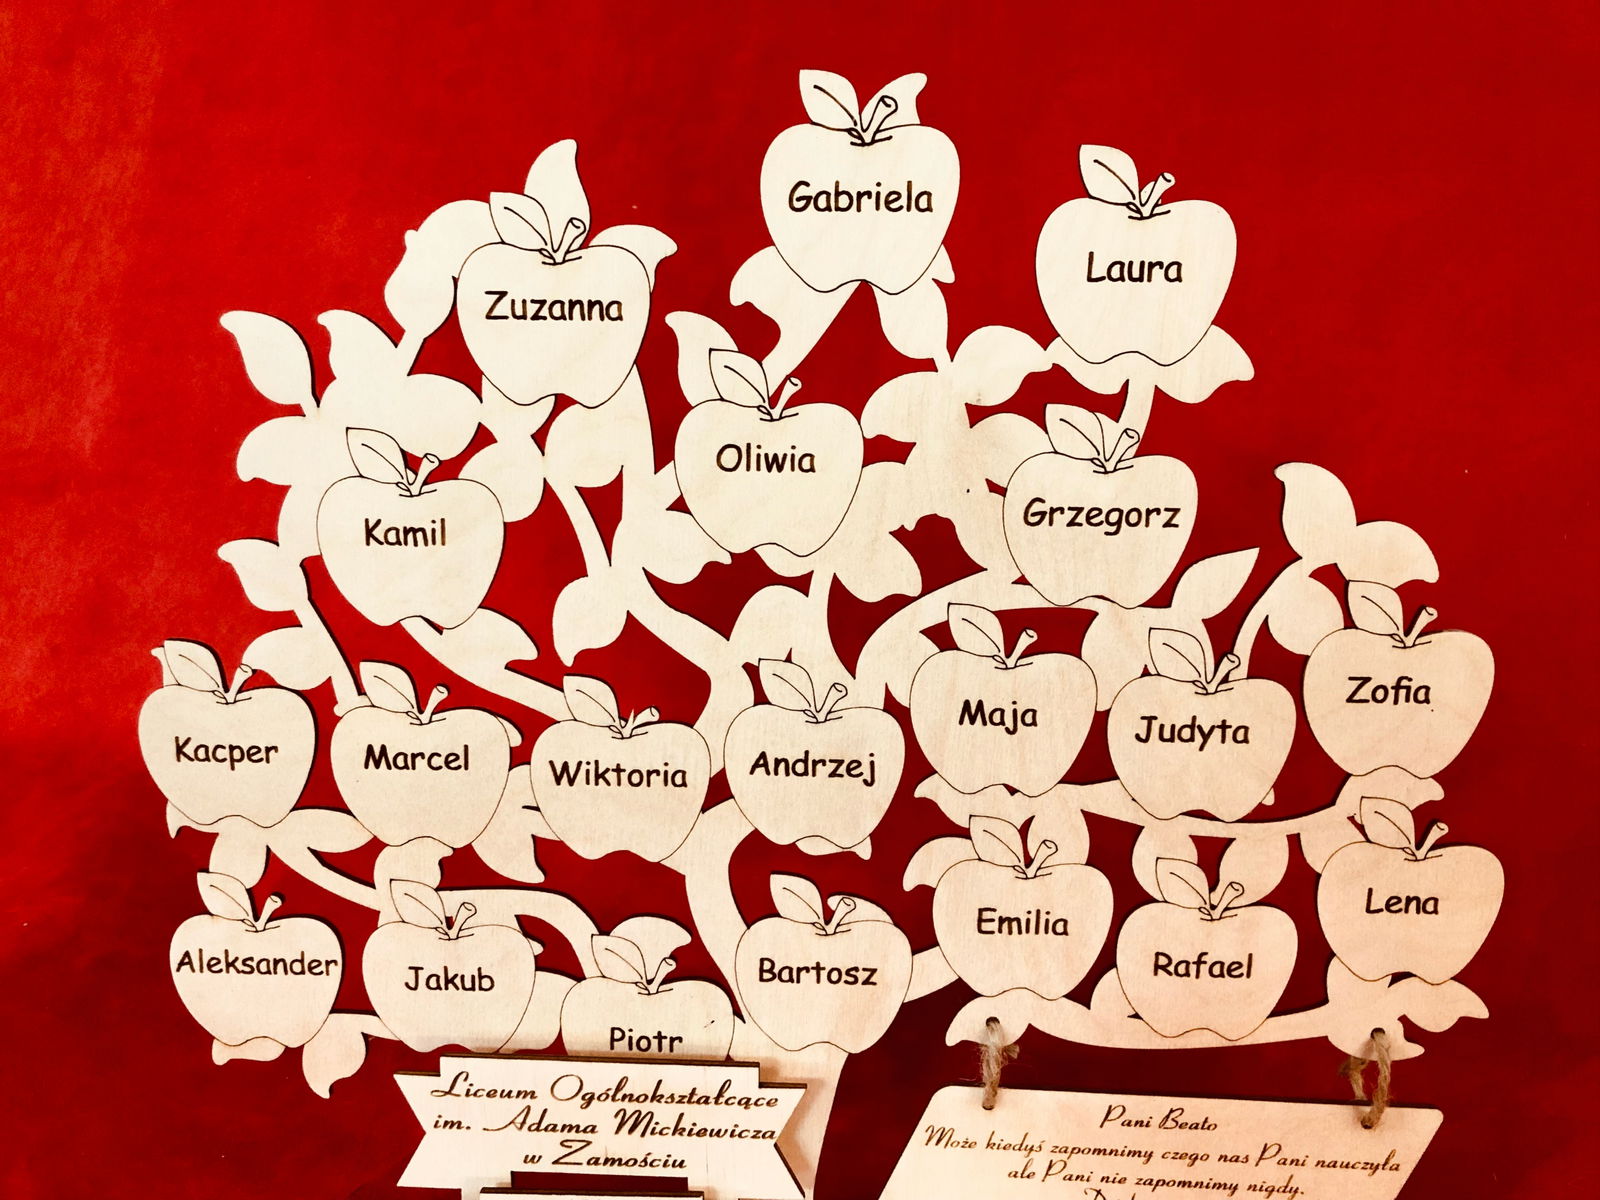 Gabriela
Laura
Zuzanna
Oliwia
Grzegorz
Kamil
Zofia
Maja
Judyta
Kacper
Marcel
Wiktoria
Andrzej
Lena
Emilia
Rafael
Aleksander
Jakub
Bartosz
Piotr
Liceum Ogólnokształcące
im. Adama Mickiewicza
w Zamościu
Pani Beato
Może kiedyś zapomnimy czego nas Pani nauczyła
ale Pani nie zapomnimy nigdy.